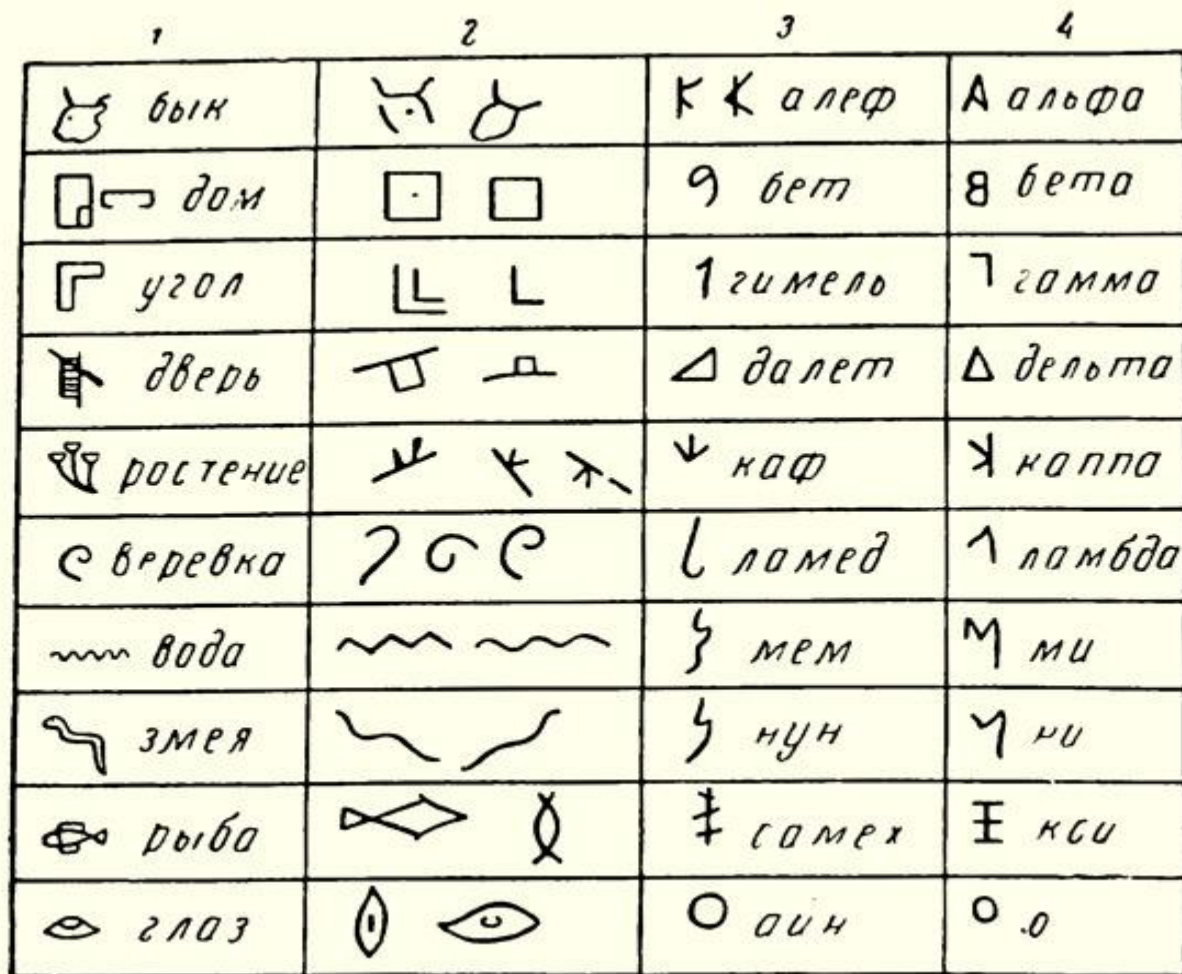 1 2 3 4
бык алеф альфа
дом бет бета
угол гимель гамма
дверь далет дельта
растение каф каппа
веревка ламед ламбда
вода мем ми
змея нун ни
рыба самех кси
глаз аин о